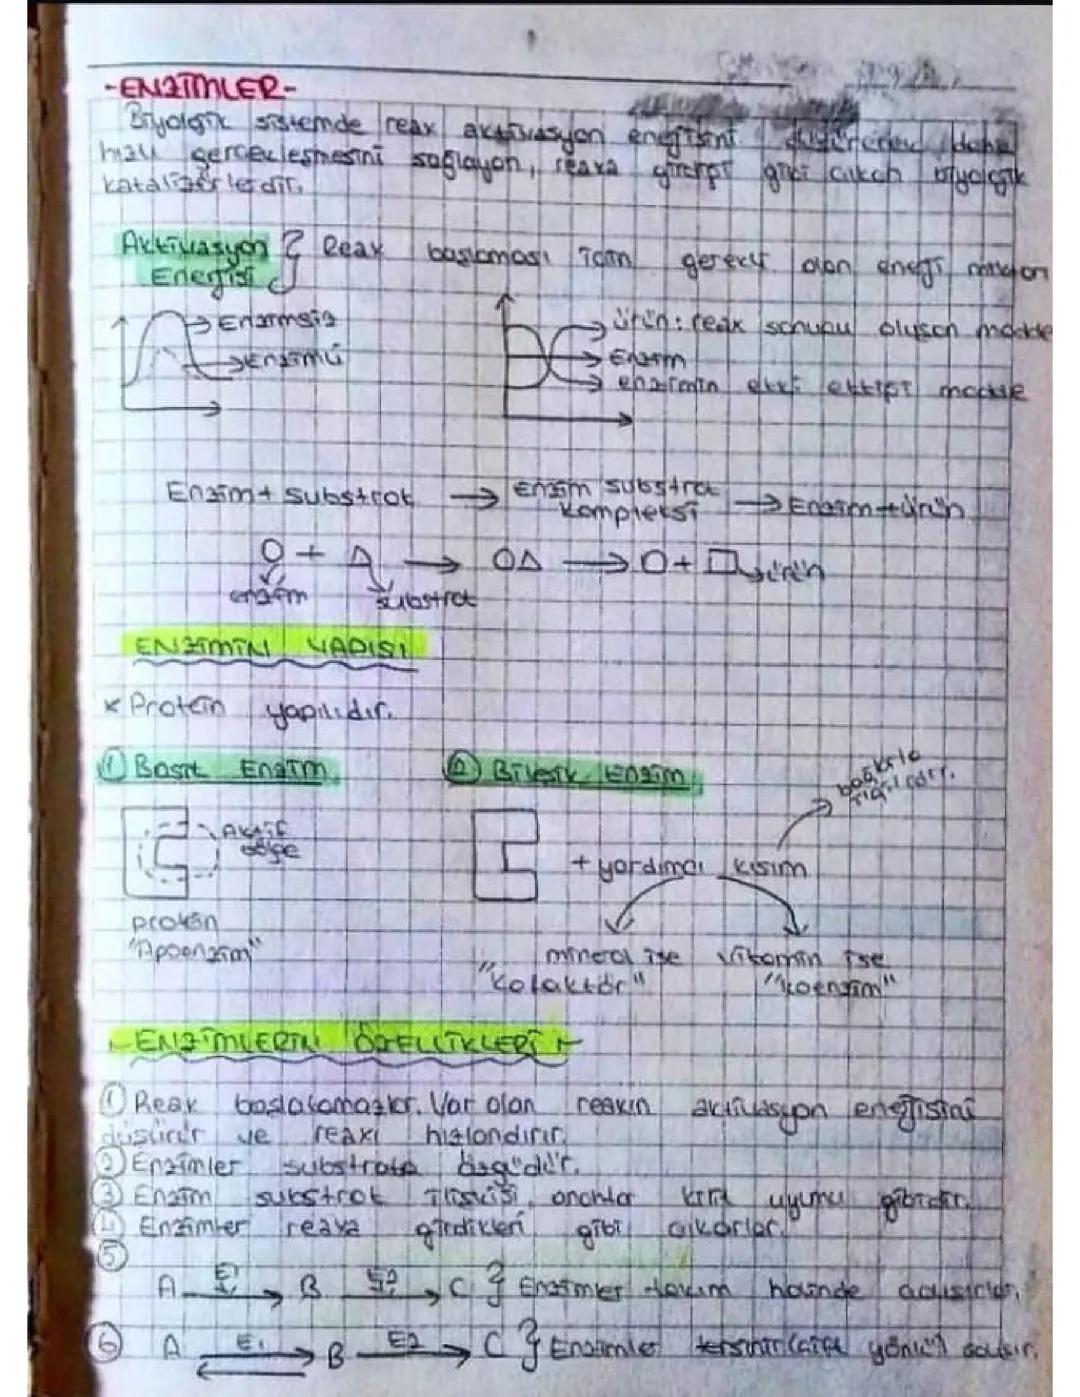 -ENZİMLER-
Biyolojik sistemde reak aktivasyon enerjisini düşürerek daha
hızlı gerçekleşmesini sağlayan, reaka girdiği gibi çıkan biyolojik
katalizörlerdir.
Aktivasyon Enerjisi } Reak başlaması için gerekli olan enerji miktarı
→ Enzimsiz
→ Enzimli
→ ürün: reak sonucu oluşan madde
→ Enzim
→ enzimin etki ettiği madde
Enzim + Substrat → Enzim substrat kompleksi → Enzim + ürün
O + △ → O△ → O + □ ürün
enzim substrat
ENZİMİN YAPISI
* Protein yapılıdır.
① Basit Enzim ② Bileşik Enzim
Aktif bölge
+ yardımcı kısım
protein
"Apoenzim"
mineral ise "Kofaktör"
vitamin ise "koenzim"
-ENZİMLERİN ÖZELLİKLERİ-
① Reak başlatamazlar. Var olan reakın aktivasyon enerjisini
düşürür ve reakı hızlandırır.
② Enzimler substrata özgüdür.
③ Enzim substrat ilişkisi anahtar kilit uyumu gibidir.
④ Enzimler reaka girdikleri gibi çıkarlar.
⑤
A E1→ B E2→ C } Enzimler takım halinde çalışırlar.
⑥ A E1⇄ B E2→ C } Enzimler tersinir (çift yönlü) çalışır.